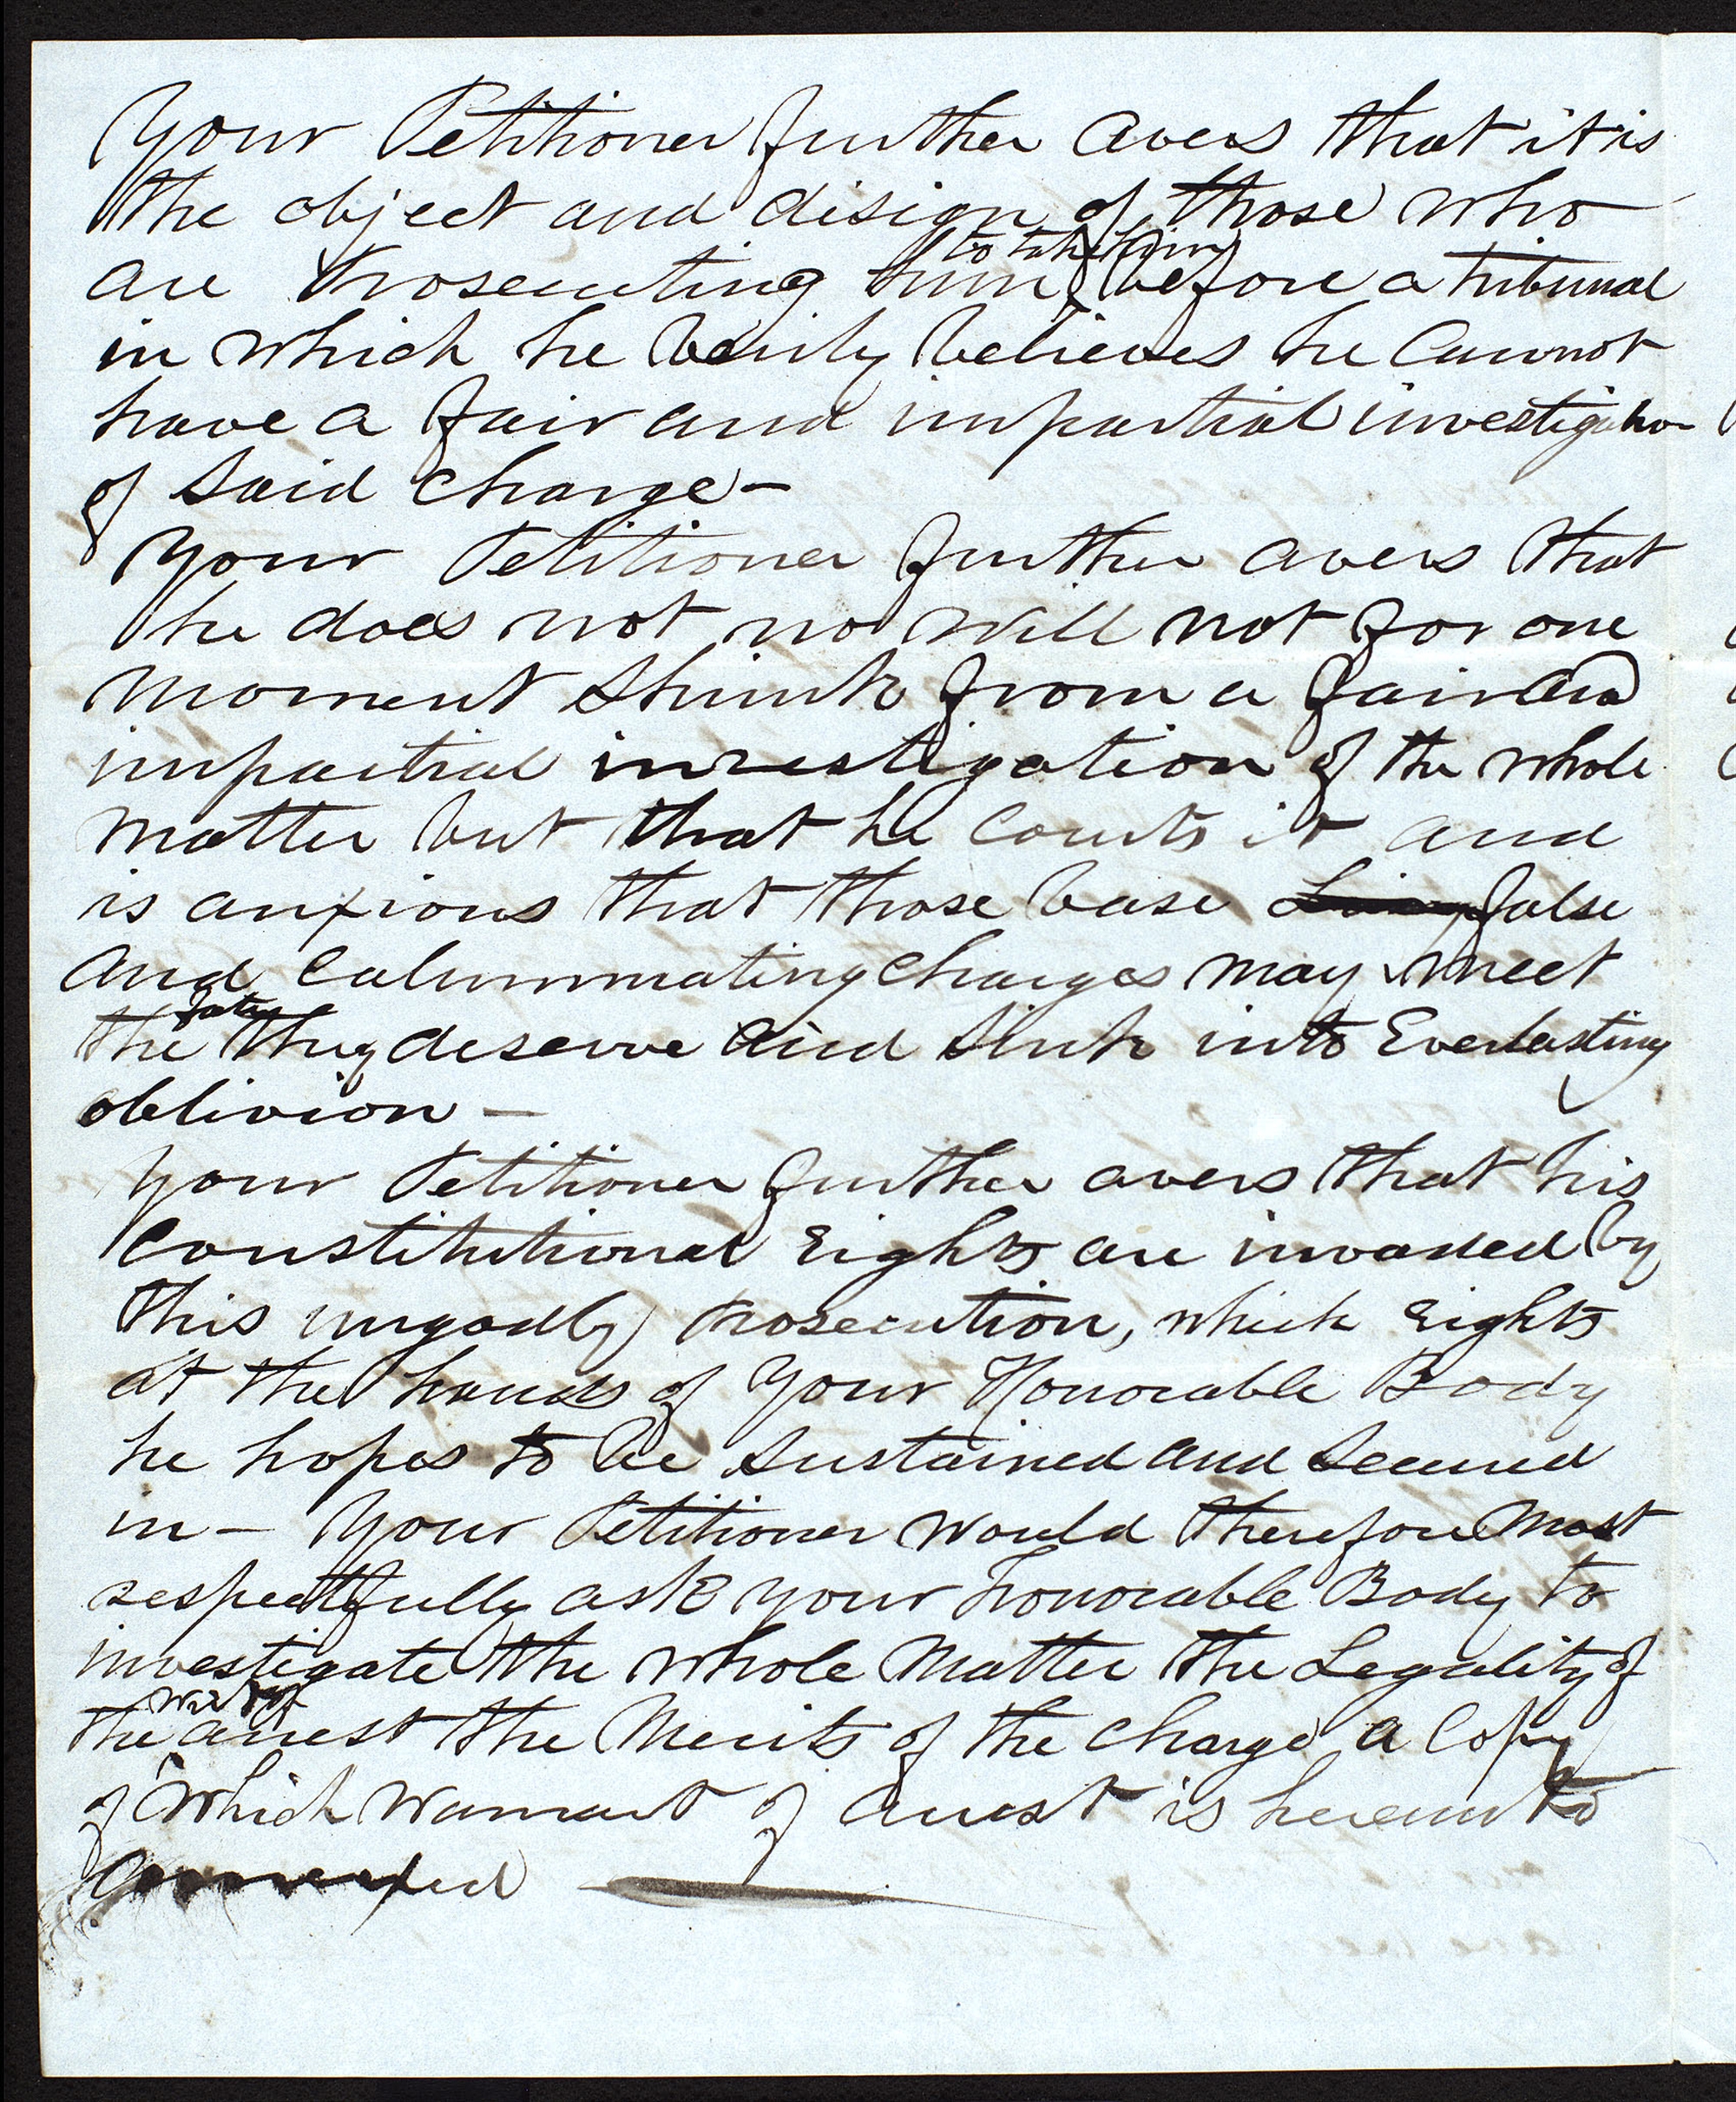 Your Petitioner further avers that it is
the object and disign of those who
are Prosecuting him to take him before a tribunal
in which he verily believes he Cannot
have a fair and impartial investigation
of said charge—
Your Petitioner further avers that
he does not no will not for one
moment shrink from a fair and
impartial investigation of the whole
matter but that he Courts it and
is anxious that those base false
and Calumnating Charges may meet
the fate they deserve and sink into Everlasting
oblivion—
Your Petitioner further avers that his
Constitutional Rights are invaded by
this ungodly Prosecution, which Rights
at the hands of Your Honorable Body
he hopes to be sustained and secured
in— Your Petitioner would therefore most
respectfully ask your honorable Body to
investigate the whole Matter the Legality of
the warrant arrest the Merits of the charge a Copy
of which Warrant of Arrest is hereunto
Connexed